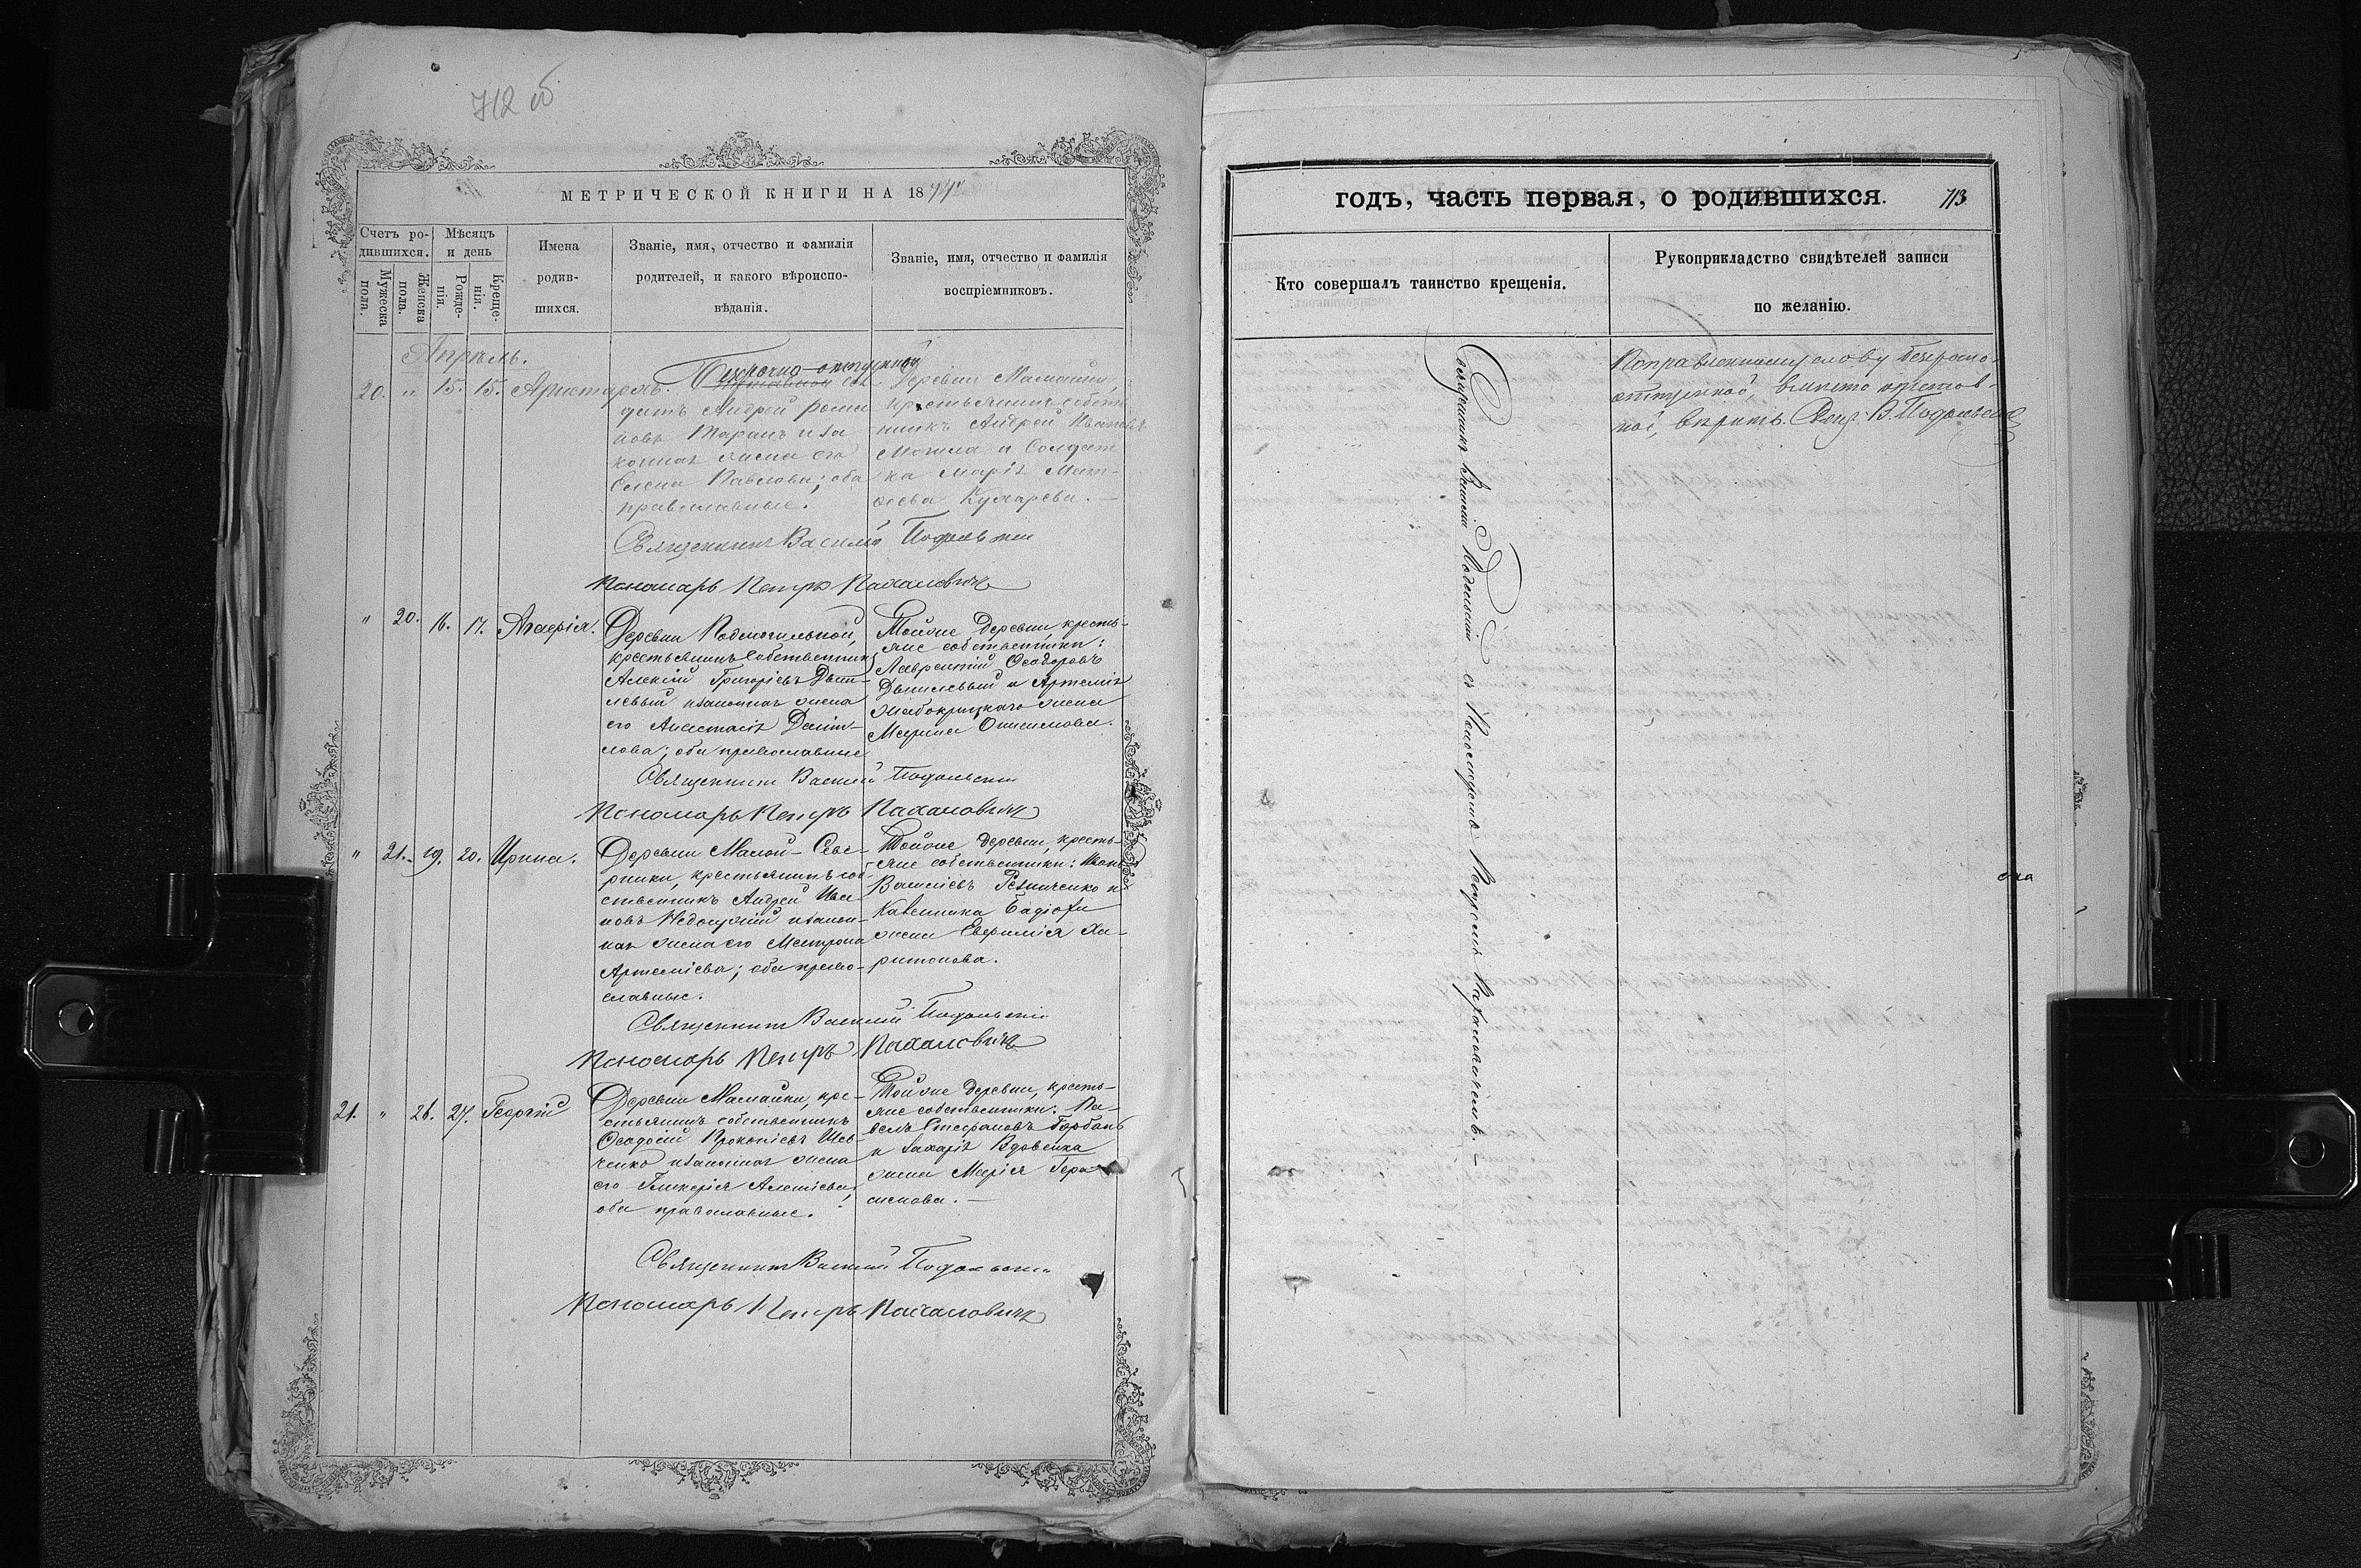 712 об
МЕТРИЧЕСКОЙ КНИГИ НА 1877
Счетъ ро-
дившихся.
Мужеска
пола.
Женска
пола.
Мѣсяцъ
и день
Рожде-
нія.
Креще-
нія.
Имена
родив-
шихся.
Званіе, имя, отчество и фамилія
родителей, и какого вѣроиспо-
вѣданія.
Званіе, имя, отчество и фамилія
воспріемниковъ.
Апрѣль.
20. " 15. 15. Аристархъ.
Безсрочно-отпускной
сол-
датъ Андрей Рома
новъ Таранъ и за
конная жена его
Елена Павлова; оба
православные.
Деревни Мамайки,
крестьянинъ собст
никъ Андрей Ивановъ
Могила и Солдат
ка Марія Мат-
ѳеева Кухарева.
Священникъ Василій Подольскій
Пономарь Петръ Пахаловичъ
" 20. 16. 17.
Деревни Подмогильной,
крестьянинъ собственникъ
Алексій Григорьевъ
и законная жена
его Анастасія Даніи-
лова; оба православные
Тойже деревни кресть-
яне собственники:
Лаврентій Ѳеодоровъ
и Артемія
жена
Марина Онисимова.
Священникъ Василій Подольскій
Пономарь Петръ Пахаловичъ
" 21. 19. 20. Ирина.
Деревни Малой-Севе-
ринки, крестьянинъ соб-
ственникъ Андрей Ива
новъ и закон-
ная жена его Матрона
Артеміева; оба право-
славные.
Тойже деревни, кресть-
яне собственники: Иванъ
Василіевъ Резниченко и
жена Евфимія Ха-
ритонова.
Священникъ Василій Подольскій
Пономарь Петръ Пахаловичъ
21. " 26. 27. Георгій
Деревни Мамайки, кре-
стьянинъ собственникъ
Ѳеодосій Прокопіевъ Шев-
ченко и законная жена
его Гликерія Алексіева;
оба православные.
Тойже деревни, кресть-
яне собственники: Па-
велъ Стефановъ Горбань
и Захарія Вдовенка
жена Марія Гера-
симова.
Священникъ Василій Подольскій
Пономарь Петръ Пахаловичъ
годъ, часть первая, о родившихся.
713.
Кто совершалъ таинство крещенія.
Рукоприкладство свидѣтелей записи
по желанію.
Священникъ Василій Подольскій съ Пономаремъ Петромъ Пахаловичемъ.
Поправленному слову безсрочно-
отпускной, вмѣсто
вѣрить. Свящ. В. Подольскій